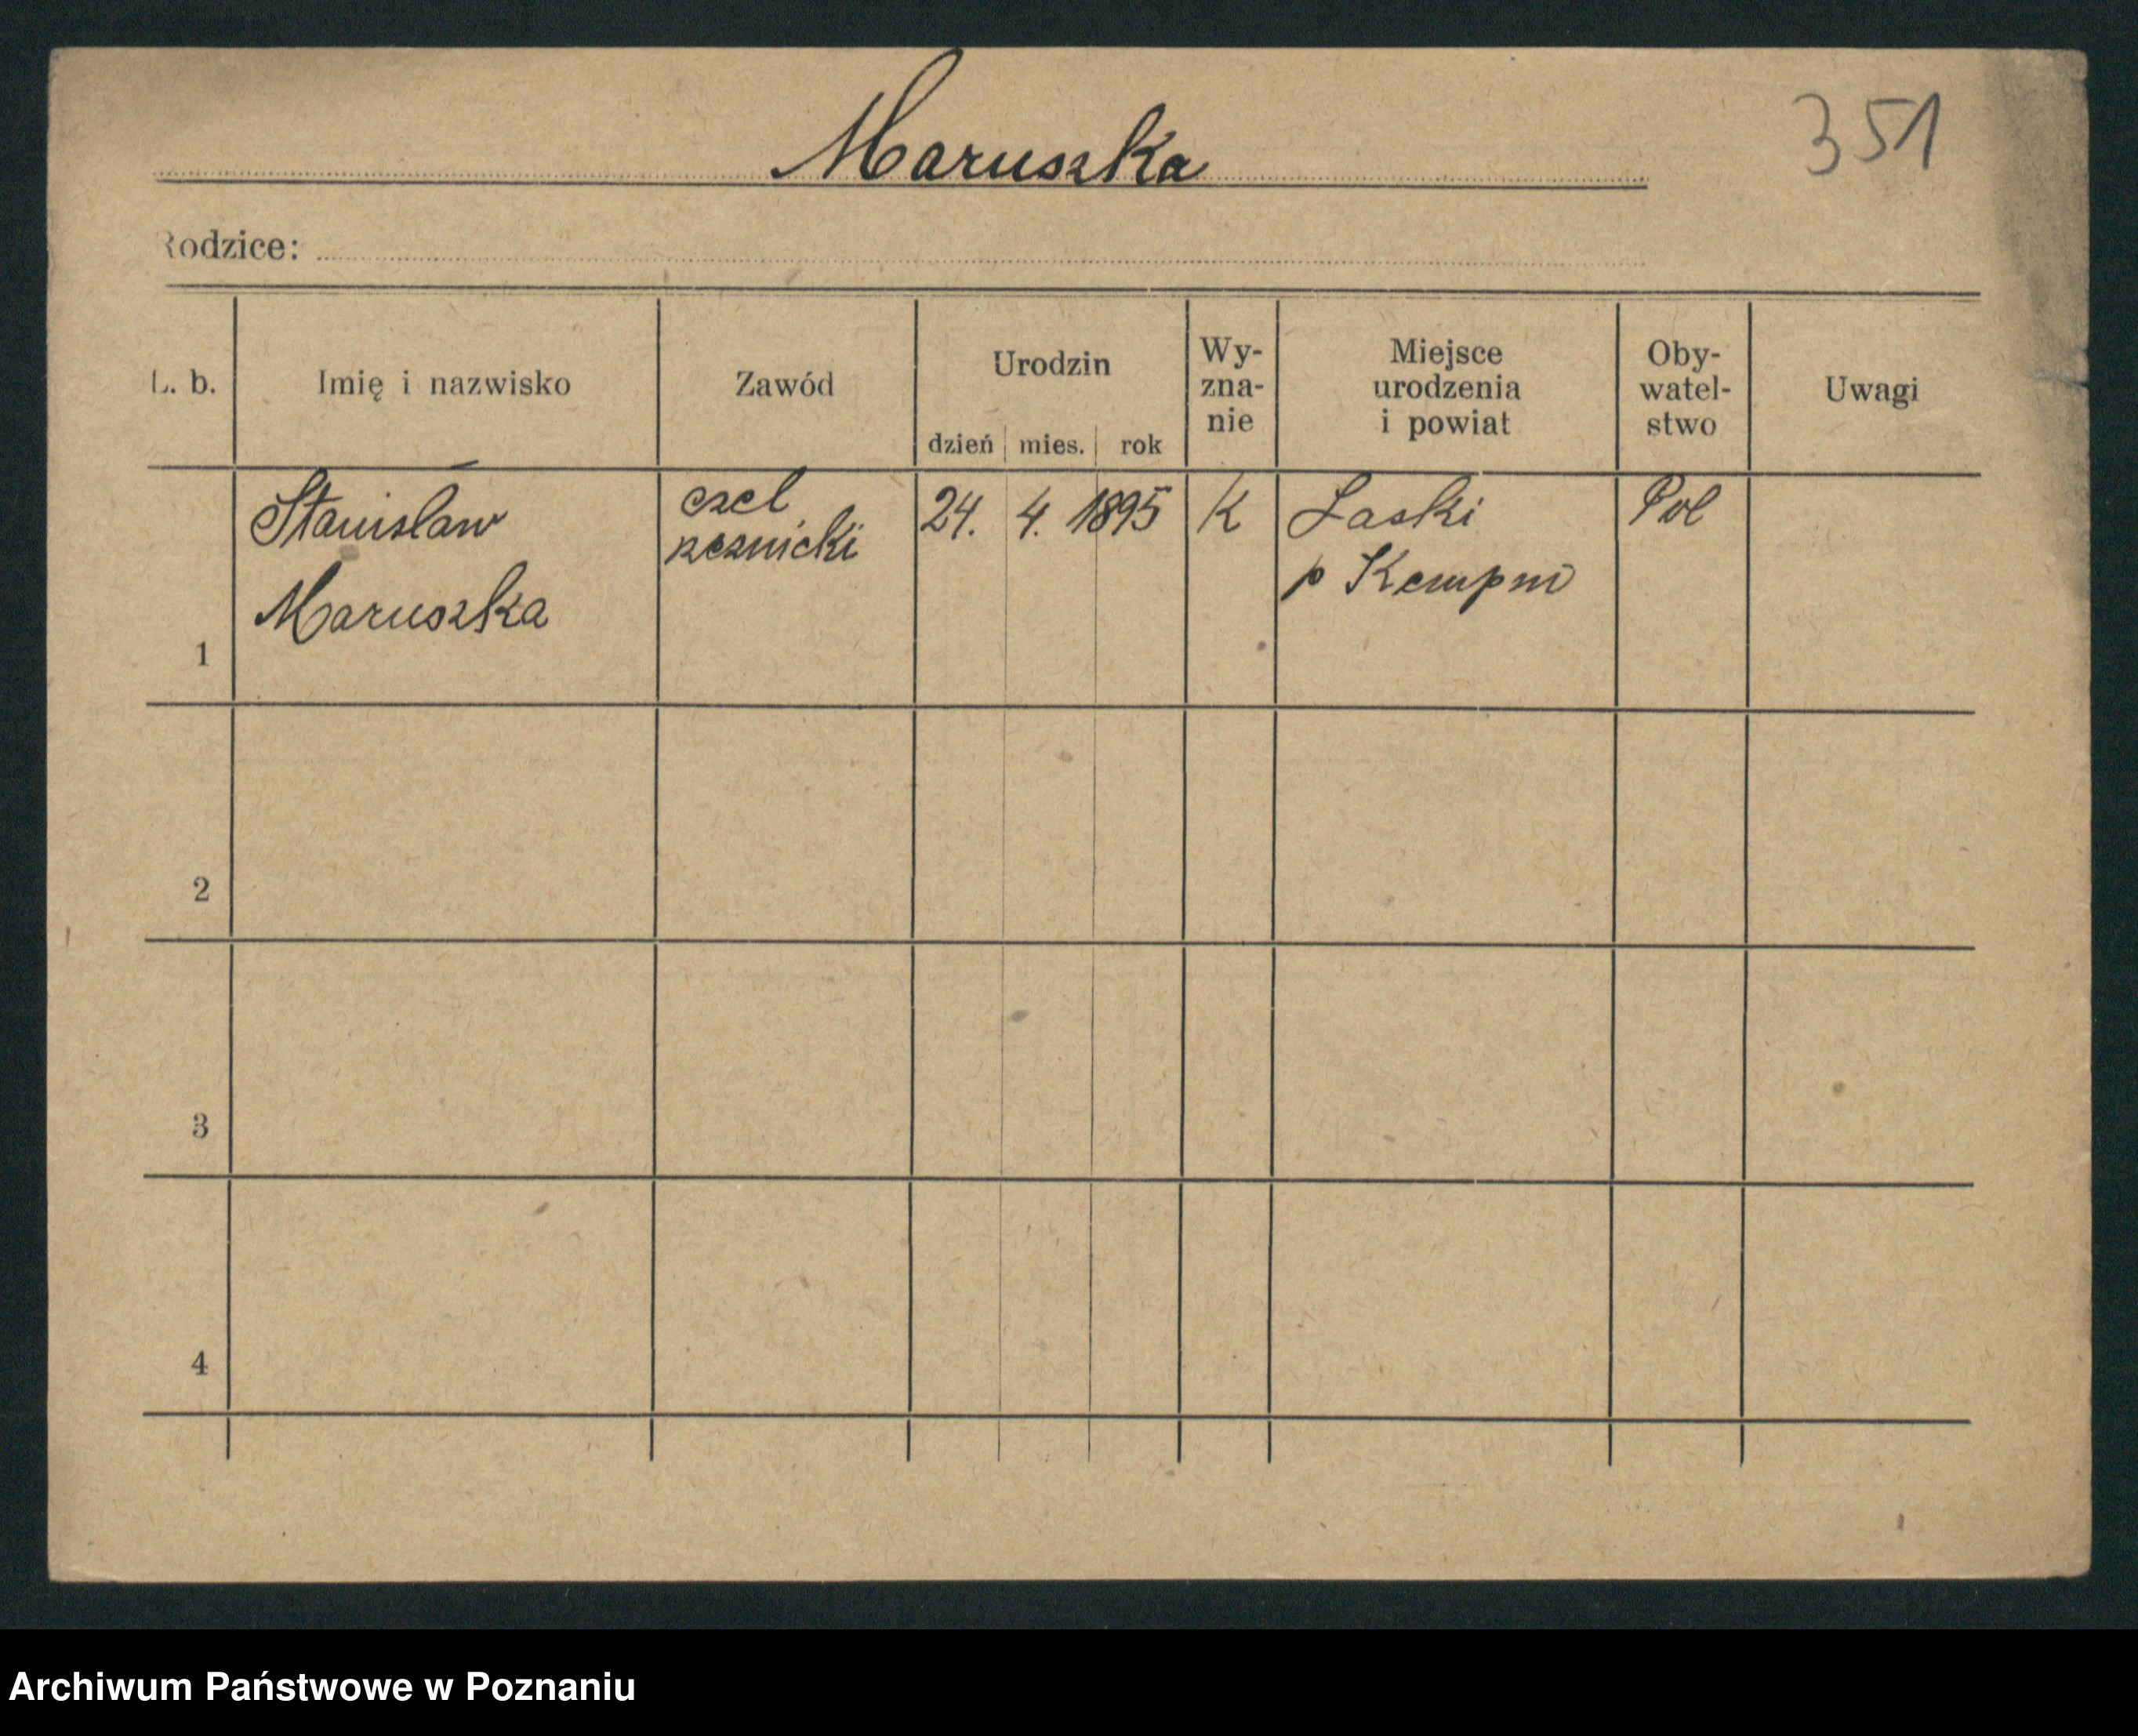 Maruszka
351
Rodzice:
L. b.
Imię i nazwisko
Zawód
Urodzin
dzień mies. rok
Wy-
zna-
nie
Miejsce
urodzenia
i powiat
Oby-
watel-
stwo
Uwagi
1
Stanisław
Maruszka
czel
rzeznicki
24. 4. 1895
K
Laski
p Kempno
Pol
2
3
4
Archiwum Państwowe w Poznaniu